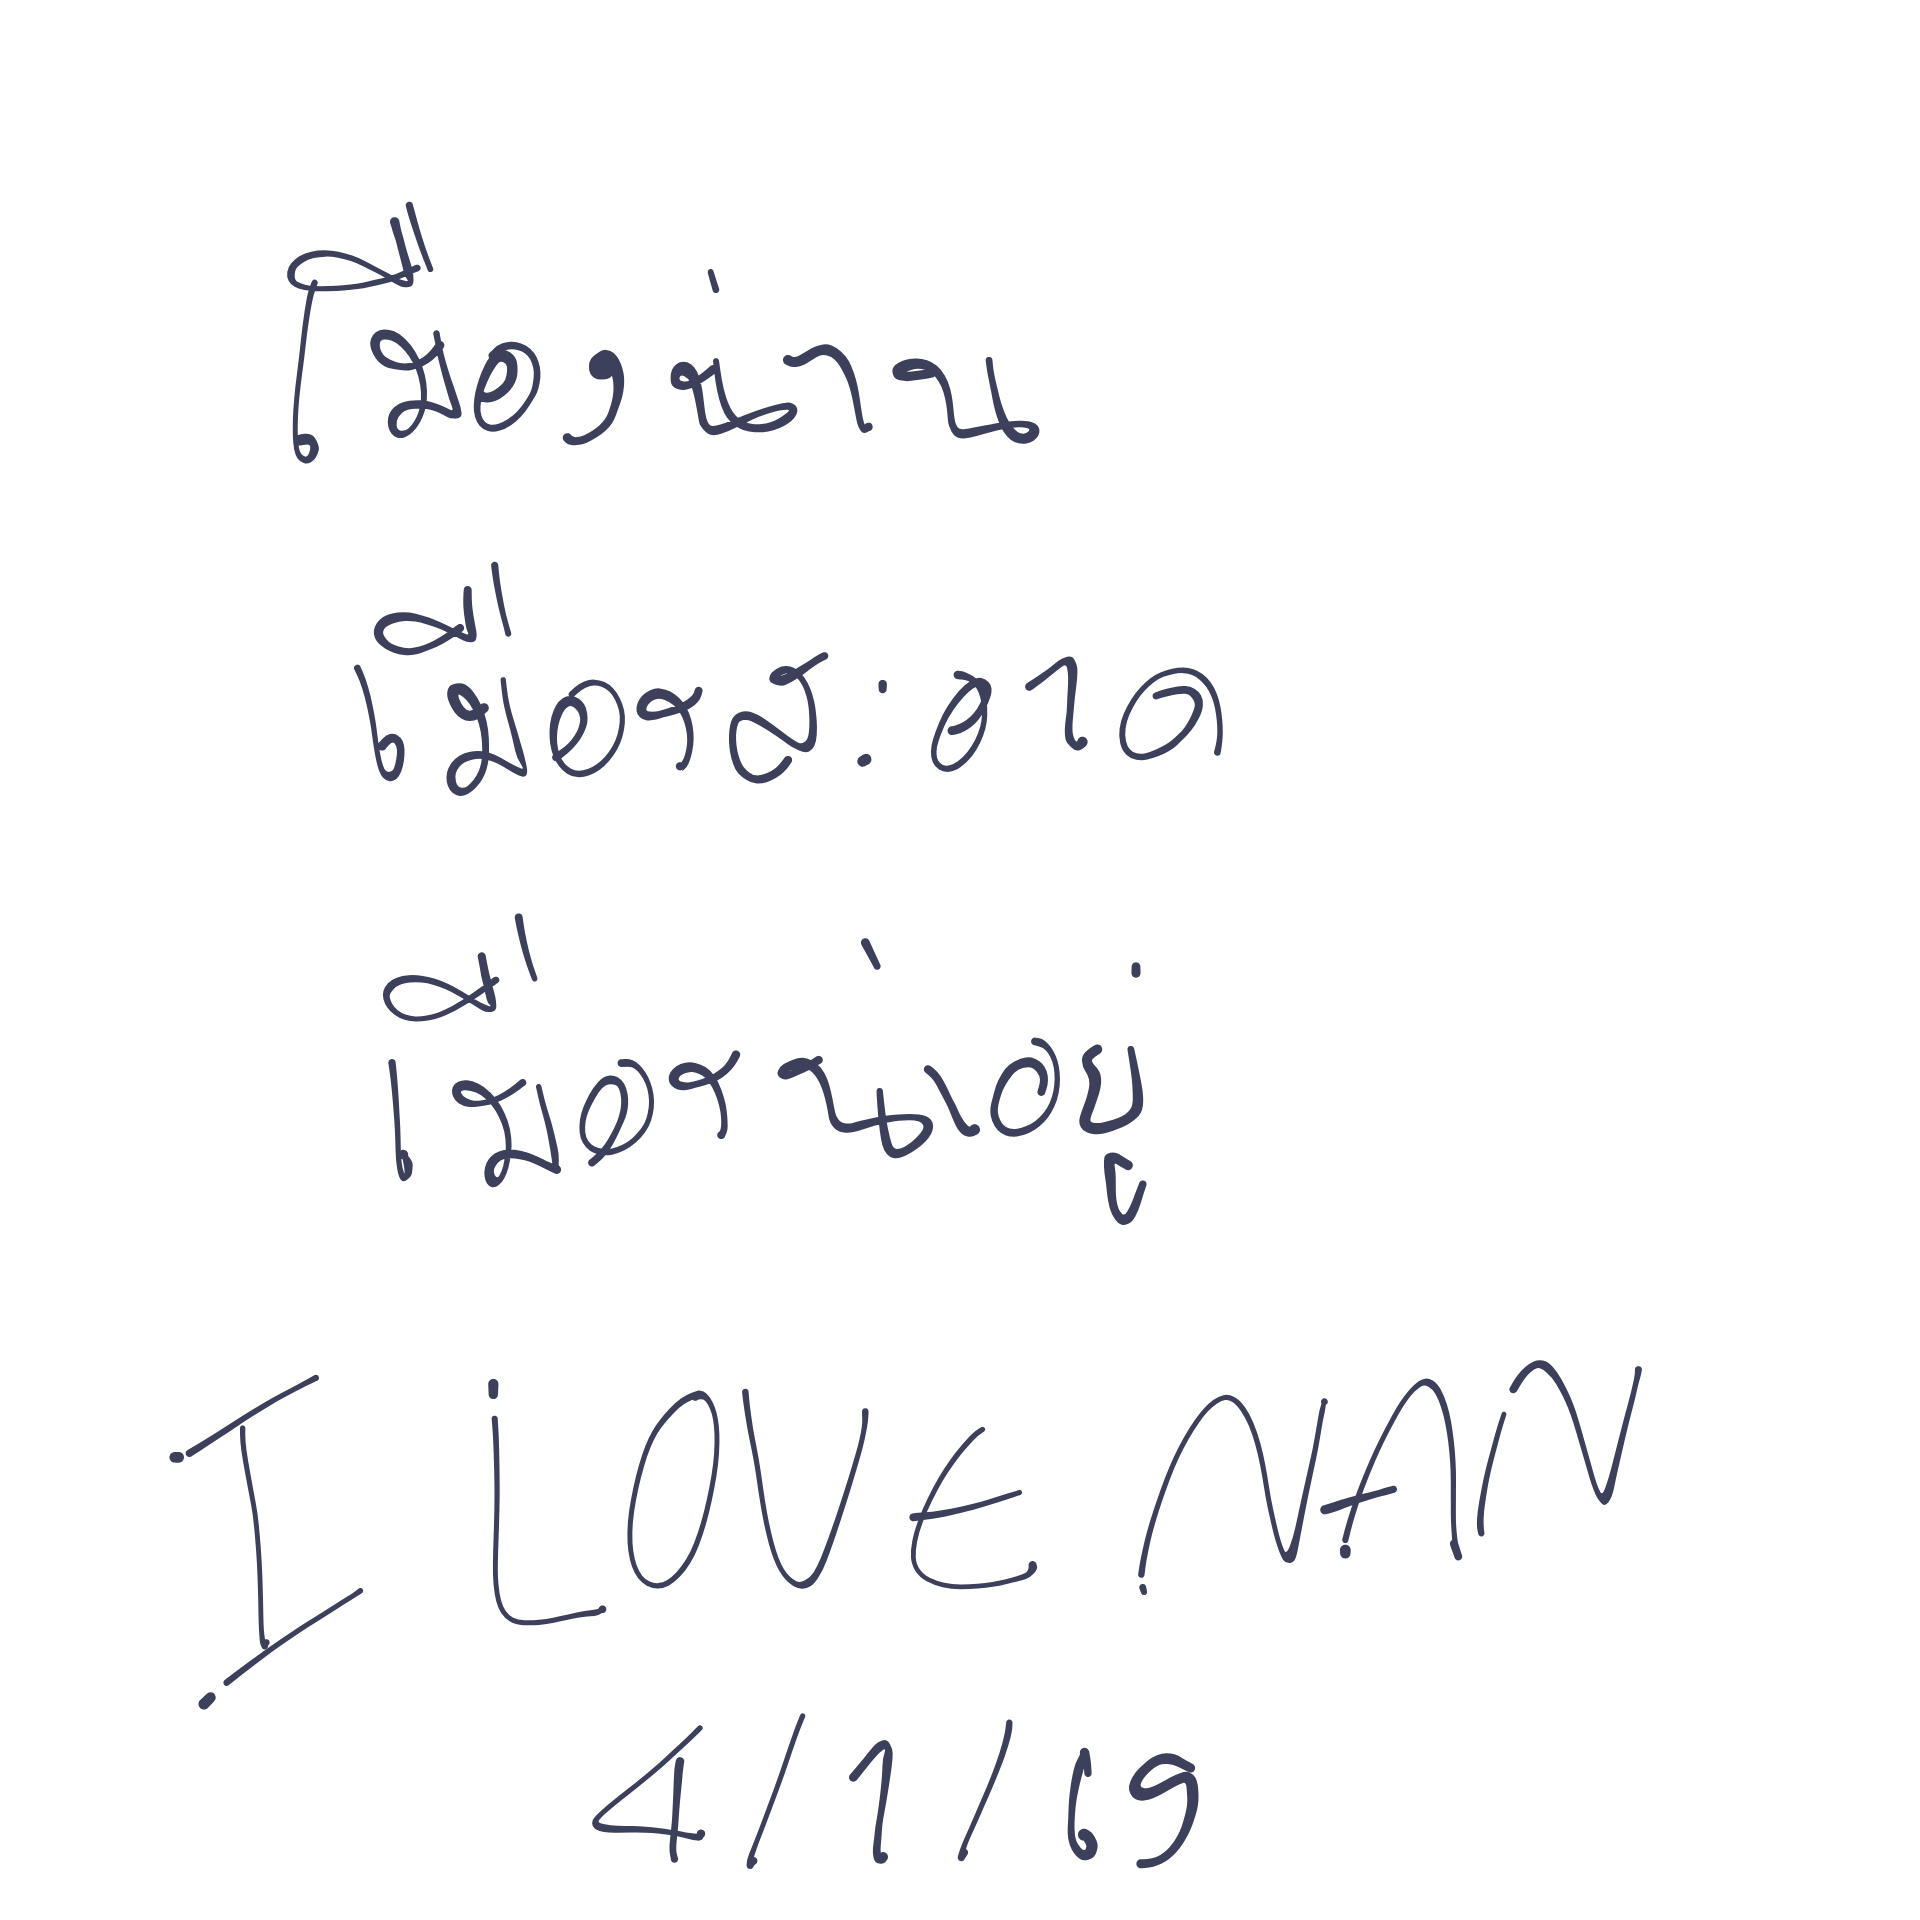 เมืองน่าน
เมืองสะอาด
เมืองน่าอยู่
I LOVE NAN
4/1/69